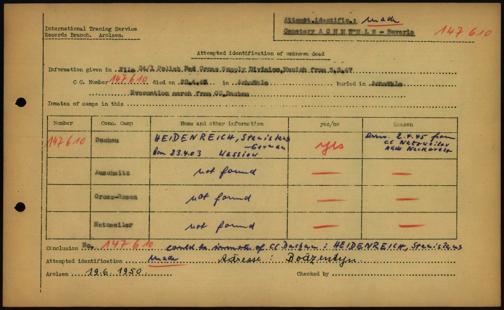 International Tracing Service
Records Branch. Arolsen.
Attempt.identific.: made
Cemetery A C H M Ü H L E - Bavaria 147610
Attempted identification of unknown dead
Information given in File 24/1 Polish Red Cross Supply Division, Munich from
CC No. 147610 died on in buried in
Evacuation march from CC Dachau
Inmates of camps in this
Number Conc. Camp Name and other information yes/no Reason
147610 Dachau HEIDENREICH, Stanislaus - German yes 2.4.45 from
born 23.4.03 Wassiow CC Natzweiler
Auschwitz not found — —
Gross-Rosen not found — —
Natzweiler not found — —
Conclusion No. 147610 could be inmate of CC Dachau: HEIDENREICH, Stanislaus
Attempted identification made Adresse: Bodzentyn
Arolsen 19.6.1950 Checked by